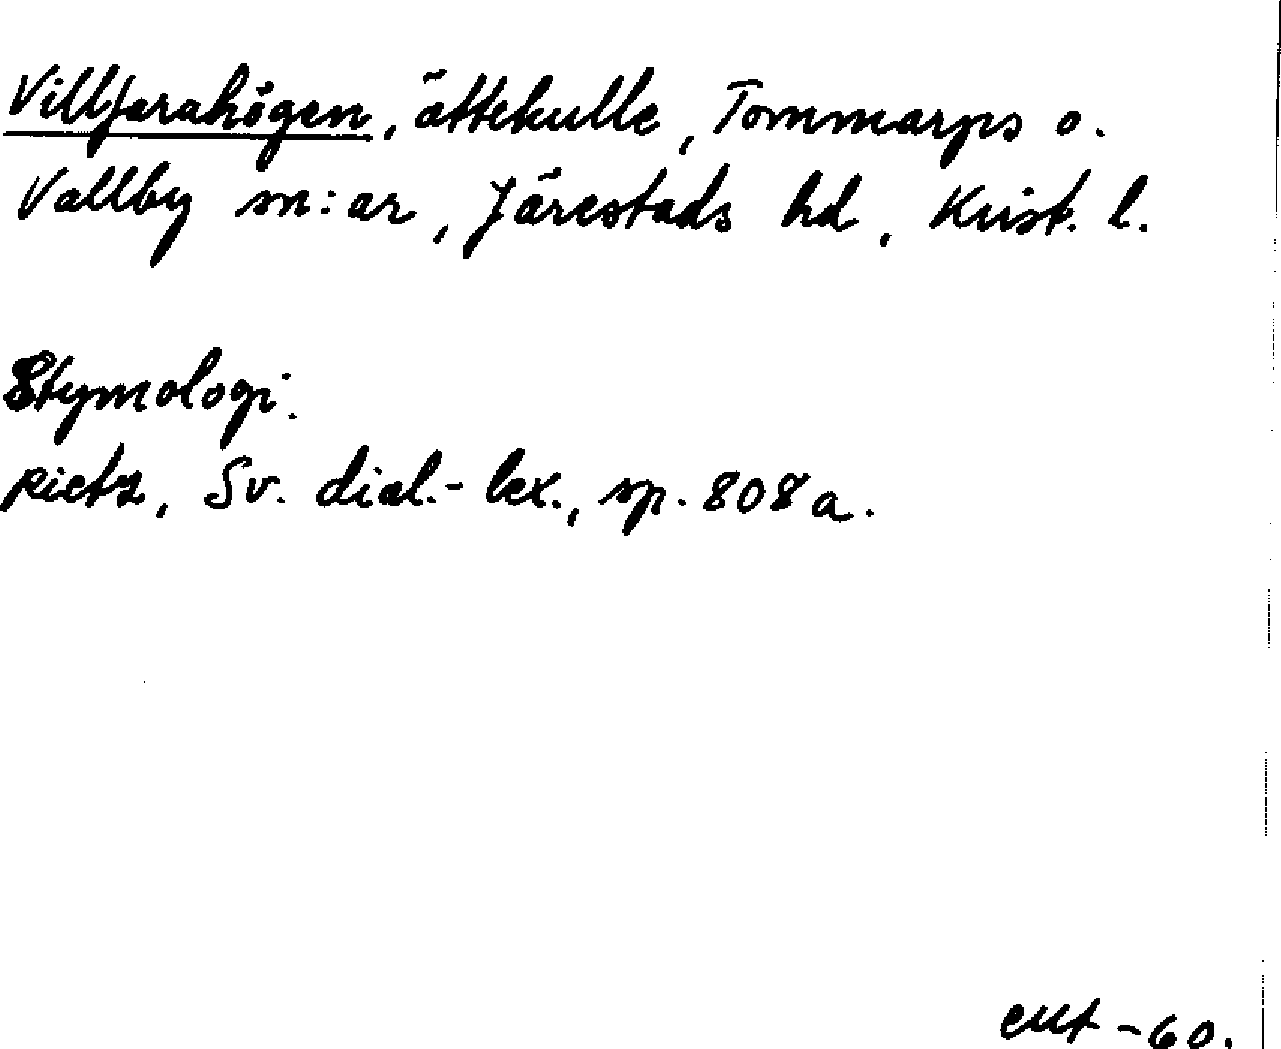 Villfarahögen, ättekulle, Tommarps o.
Vallby sn:ar, Järestads hd, Krist. l.
Etymologi.
Rietz, Sv. dial.-lex., sp. 808a.
-60.